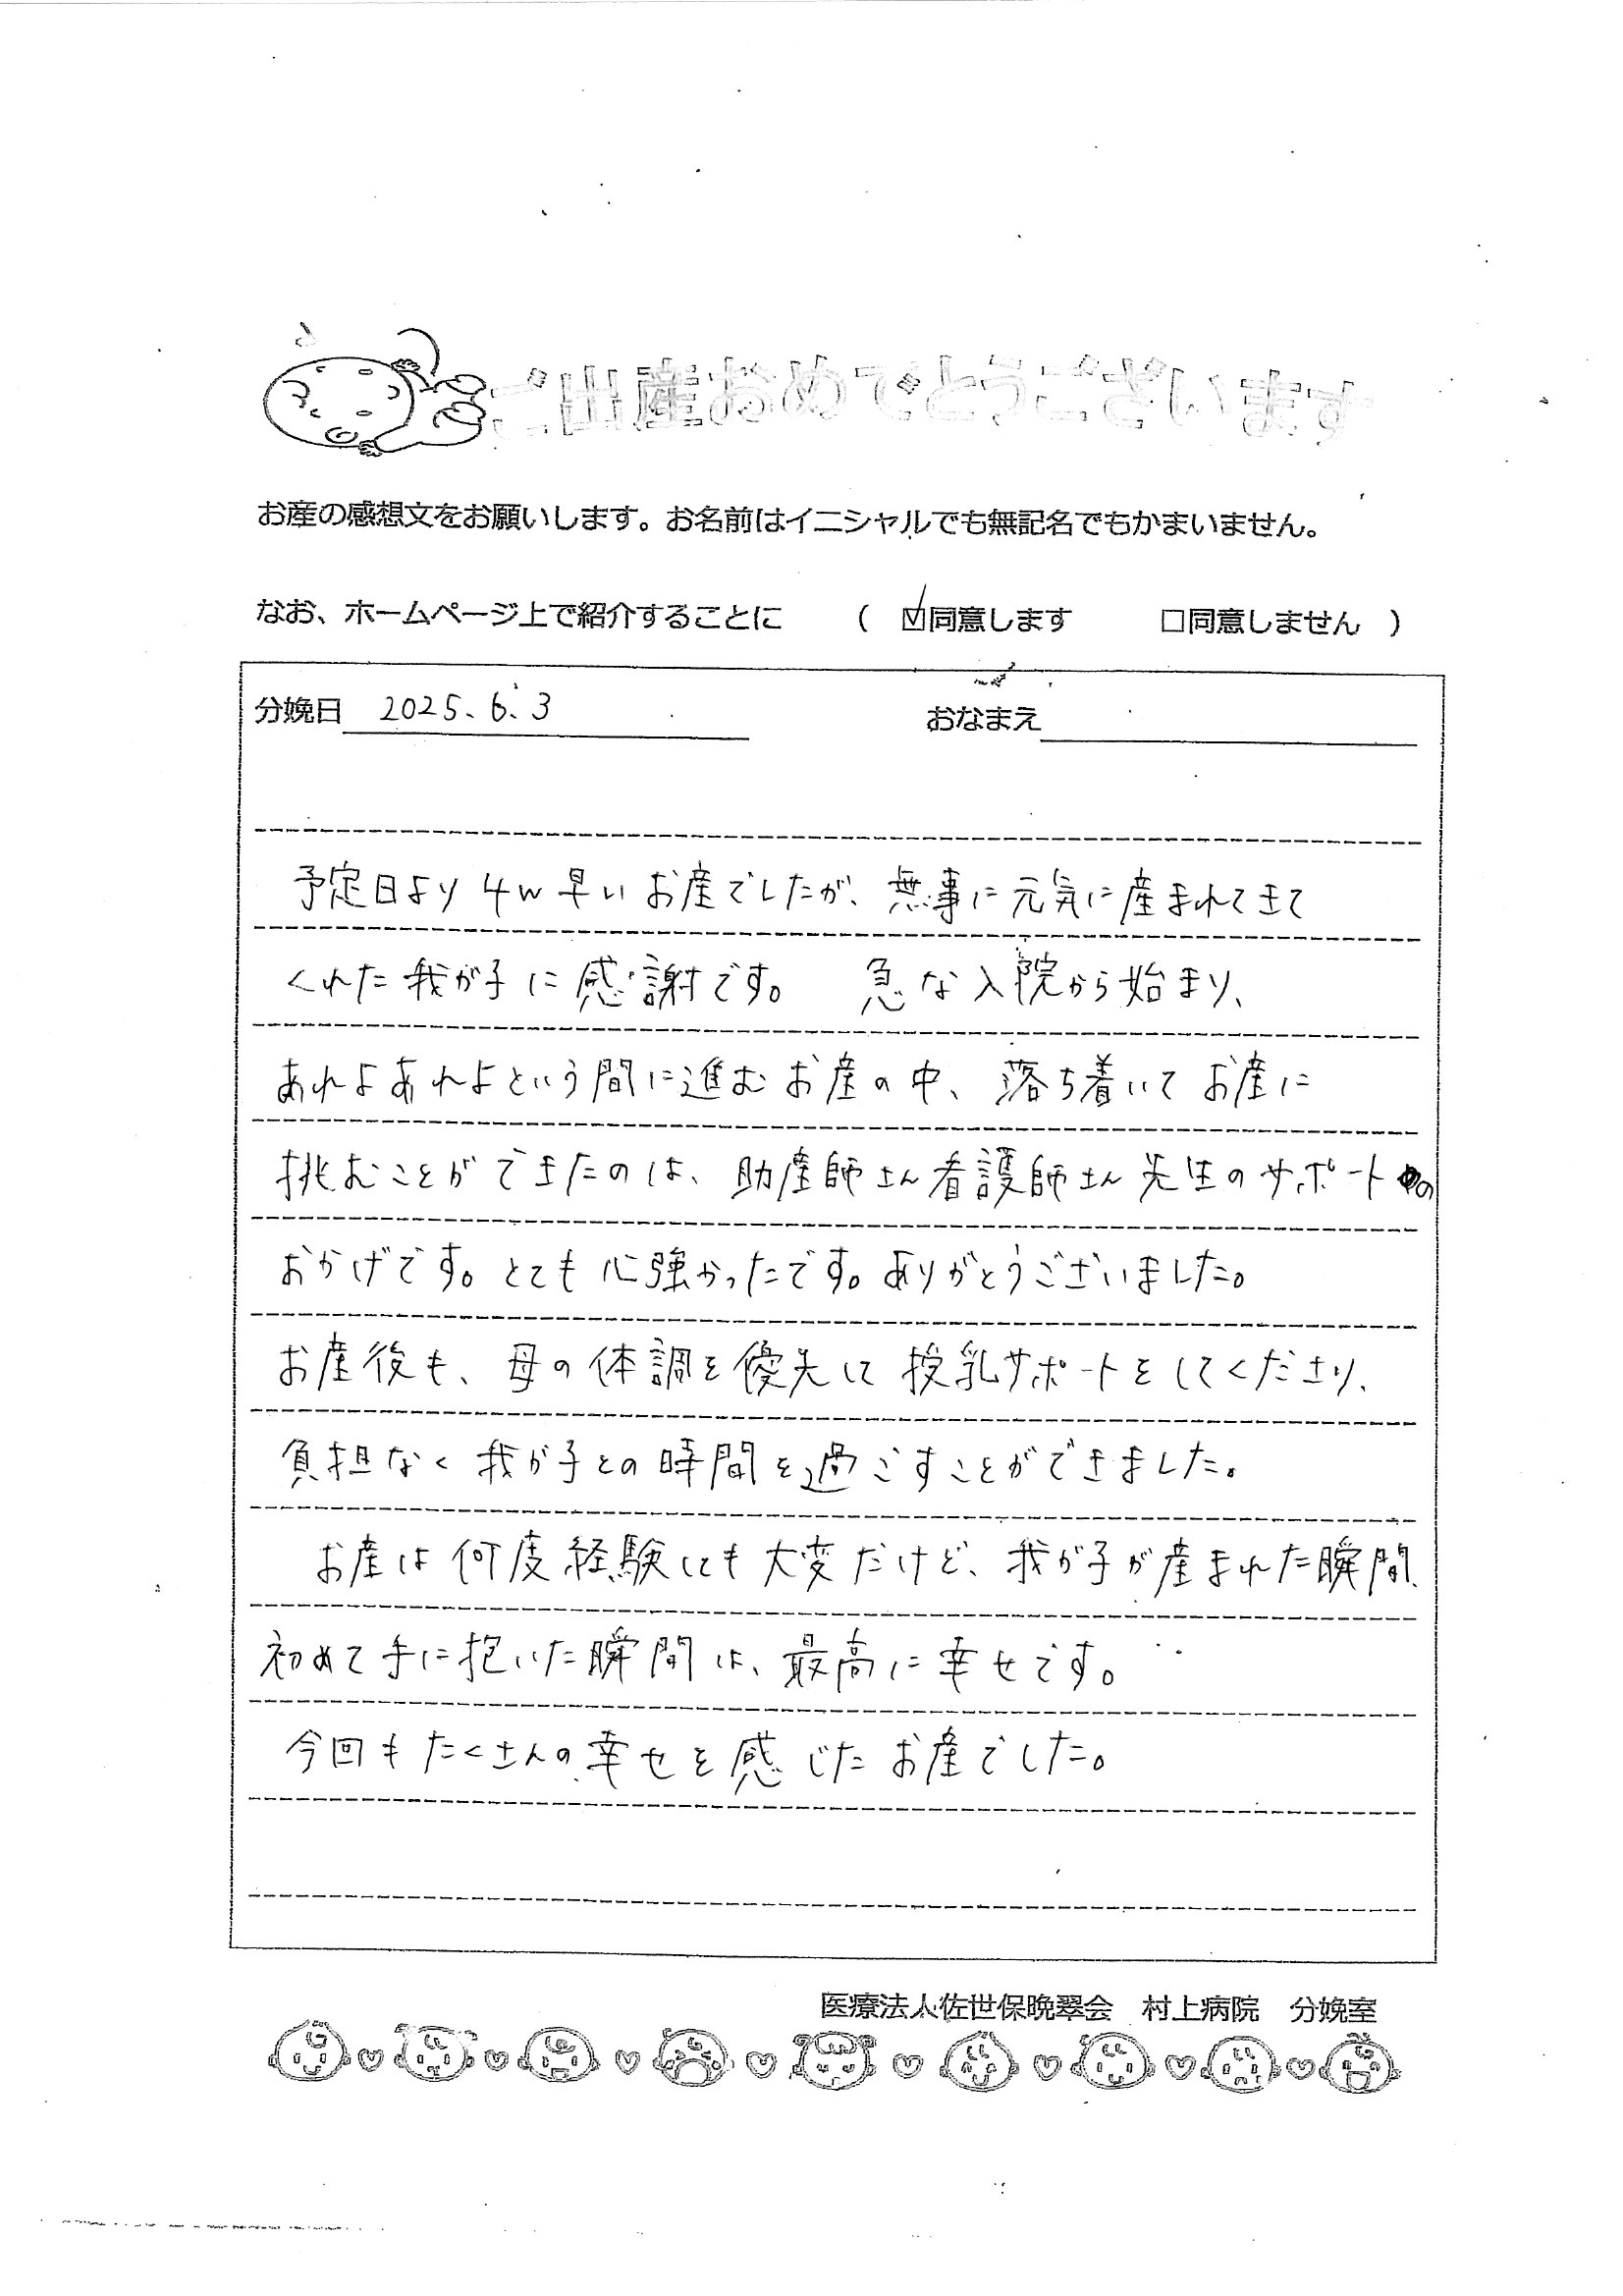 ご出産おめでとうございます
お産の感想文をお願いします。お名前はイニシャルでも無記名でもかまいません。
なお、ホームページ上で紹介することに （ ☑同意します □同意しません ）
分娩日 2025.6.3 おなまえ
予定日より4w早いお産でしたが、無事に元気に産まれてきて
くれた我が子に感謝です。 急な入院から始まり、
あれよあれよという間に進むお産の中、落ち着いてお産に
挑むことができたのは、助産師さん看護師さん先生のサポートの
おかげです。とても心強かったです。ありがとうございました。
お産後も、母の体調を優先して授乳サポートをしてくださり、
負担なく我が子との時間を過ごすことができました。
お産は何度経験しても大変だけど、我が子が産まれた瞬間、
初めて手に抱いた瞬間は、最高に幸せです。
今回もたくさんの幸せを感じたお産でした。
医療法人佐世保晩翠会 村上病院 分娩室